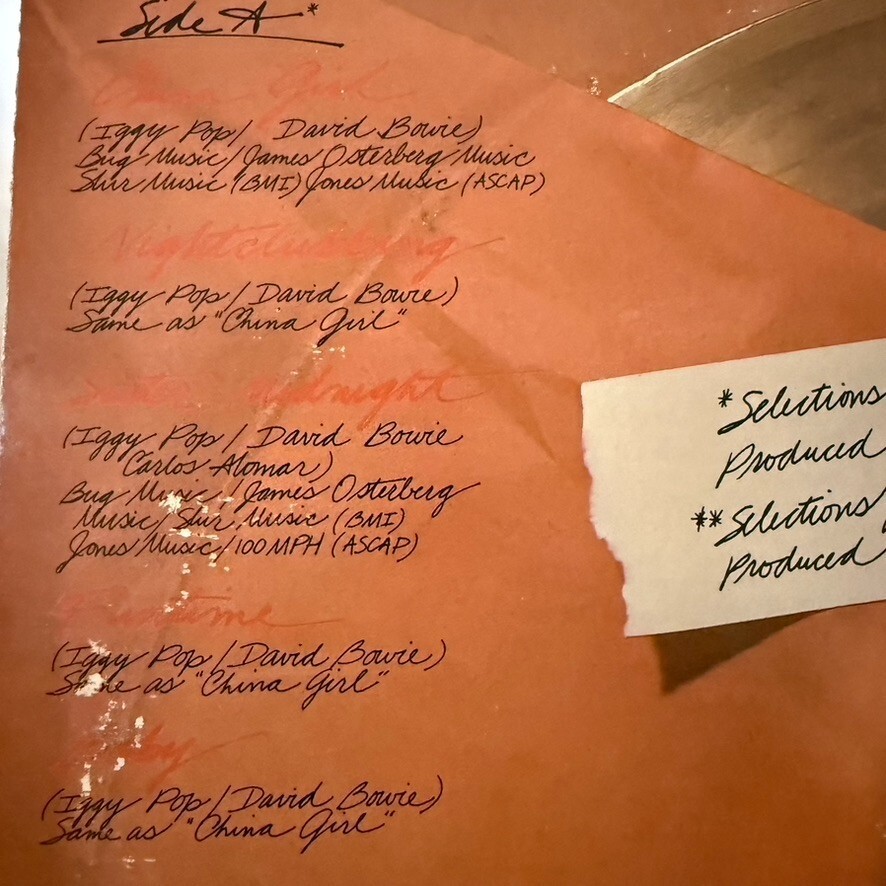 Side A*
China Girl
(Iggy Pop/ David Bowie)
Bug Music/James Osterberg Music
Slur Music (BMI) Jones Music (ASCAP)
Nightclubbing
(Iggy Pop/David Bowie)
Same as "China Girl"
Sister Midnight
(Iggy Pop/David Bowie
Carlos Alomar)
Bug Music/James Osterberg
Music/Slur Music (BMI)
Jones Music/100 MPH (ASCAP)
Funtime
(Iggy Pop/David Bowie)
Same as "China Girl"
Baby
(Iggy Pop/David Bowie)
Same as "China Girl"
*Selections
Produced
**Selections
Produced